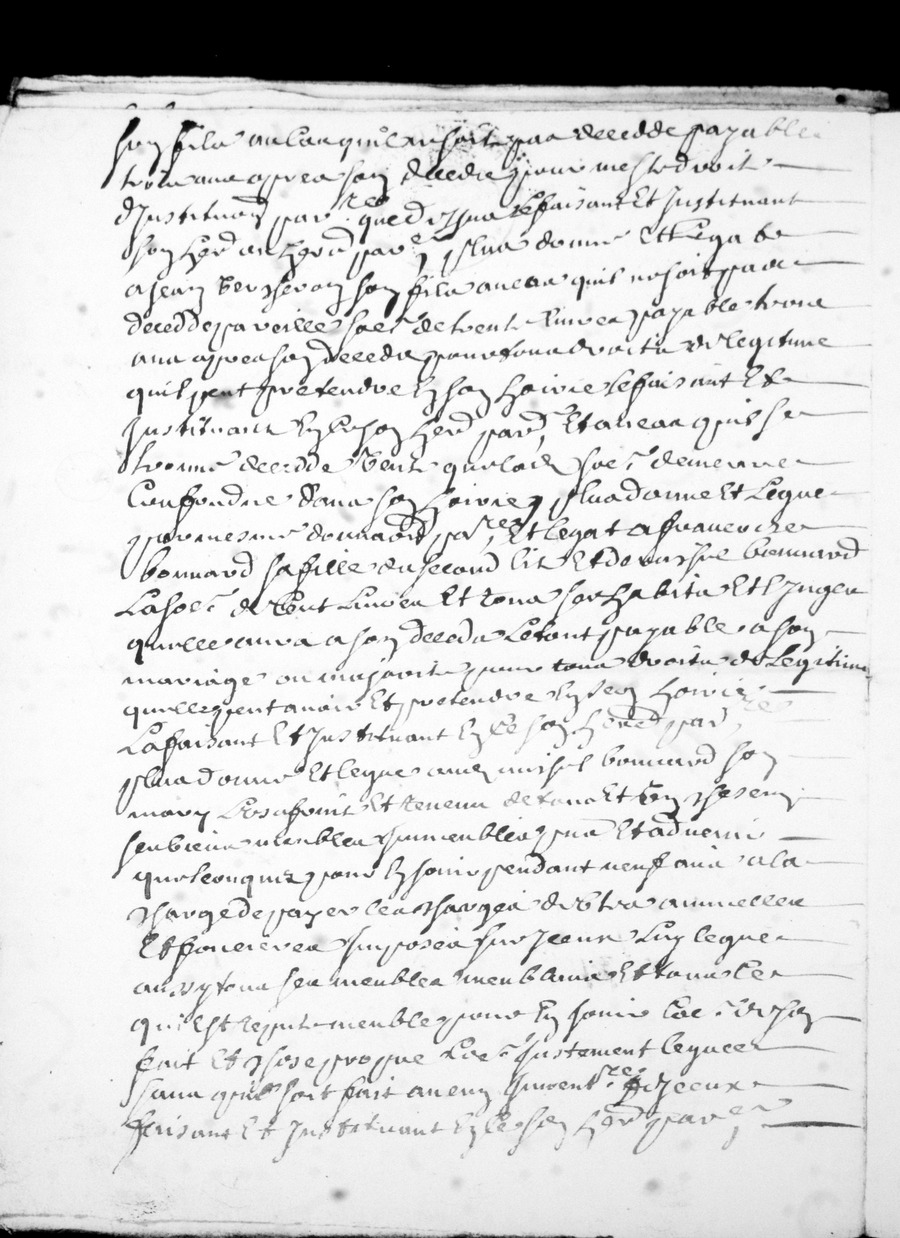 son filz au cas quil ne soit pas decedde payable
trois ans apres son decedz pour mesme droit
dinstitution par.re que dessus Le faisant Et Instituant
son herd. en herd. par.re Plus donne Et Lega
a Jean son filz au cas quil ne soit pas
decedde pareille so.e de trente Livres payable trois
ans apres son decedz pour tous droitz de legitime
quil peut pretendre En son hoirie Le faisant Et
Instituant En Ce son herd. par.re Et au cas quil se
trouve decedde veut que lad. so.e demeure
Confondue dans son hoirie Plus a donne Et Legue
par mesme donna.on par.re Et legat a francoise
bonnard sa fille du second lit Et de michel bonnard
La so.e de Cent Livres Et tous ses habitz Et linges
quelle aura a son decedz Le tout payable a son
mariage ou majorite pour tous droitz de Legitime
quelle peut avoir Et pretendre En son hoirie
La faisant Et Instituant En Ce son hered. par.re
Plus a donne Et legue aud. michel bonnard son
mary Les fruitz Et revenu de tous Et Un Chescung
ses biens meubles Immeubles pntz Et advenir
quelconques pour En jouir pendant neuf ans a la
Charge de payer les Charges dicelles annuelles
Et foncieres Imposes sur Iceux Luy legue
aussy tous ses meubles meublans Et tout Ce
qui Est repute meuble pour En jouir Co.e de son
fait Et Chose propre Les justement legues
sans quil soit fait aucung Invent.re dIceux
faisant Et Instituant En Ce son herd. par.re